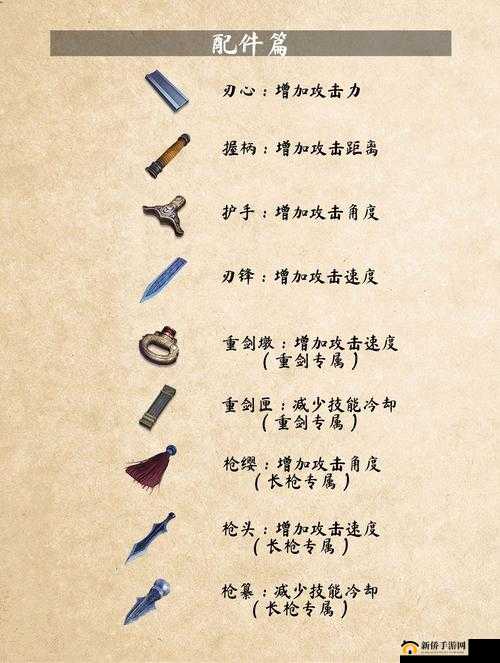 配件篇
刃心：增加攻击力
握柄：增加攻击距离
护手：增加攻击角度
刃锋：增加攻击速度
重剑墩：增加攻击速度
（重剑专属）
重剑匣：减少技能冷却
（重剑专属）
枪缨：增加攻击角度
（长枪专属）
枪头：增加攻击速度
（长枪专属）
枪纂：减少技能冷却
（长枪专属）
新侨手游网